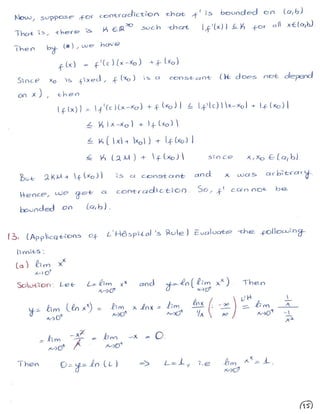 Now, suppose for contradiction that f' is bounded on (a,b)
That is, there is K ∈ ℝ^>0 such that |f'(x)| ≤ K for all x∈(a,b)
Then by (*), we have
f(x) = f'(c)(x-x₀) + f(x₀)
Since x₀ is fixed, f(x₀) is a constant (it does not depend
on x), then
|f(x)| = |f'(c)(x-x₀) + f(x₀)| ≤ |f'(c)||x-x₀| + |f(x₀)|
≤ K|x-x₀| + |f(x₀)|
≤ K(|x|+|x₀|) + |f(x₀)|
≤ K(2M) + |f(x₀)| since x,x₀ ∈ (a,b)
But 2KM + |f(x₀)| is a constant and x was arbitrary.
Hence, we get a contradiction. So, f' cannot be
bounded on (a,b).
13. (Applications of L'Hôspital's Rule) Evaluate the following
limits:
(a) lim x→0⁺ xˣ
Solution: Let L = lim x→0⁺ xˣ and y = ln(lim x→0⁺ xˣ) Then
y = lim x→0⁺ (ln xˣ) = lim x→0⁺ x lnx = lim x→0⁺ lnx / 1/x (-∞/∞) L'H = lim x→0⁺ (1/x) / (-1/x²)
= lim x→0⁺ -x²/x = lim x→0⁺ -x = 0
Then 0 = y = ln(L) ⇒ L = 1, i.e. lim x→0⁺ xˣ = 1.
15